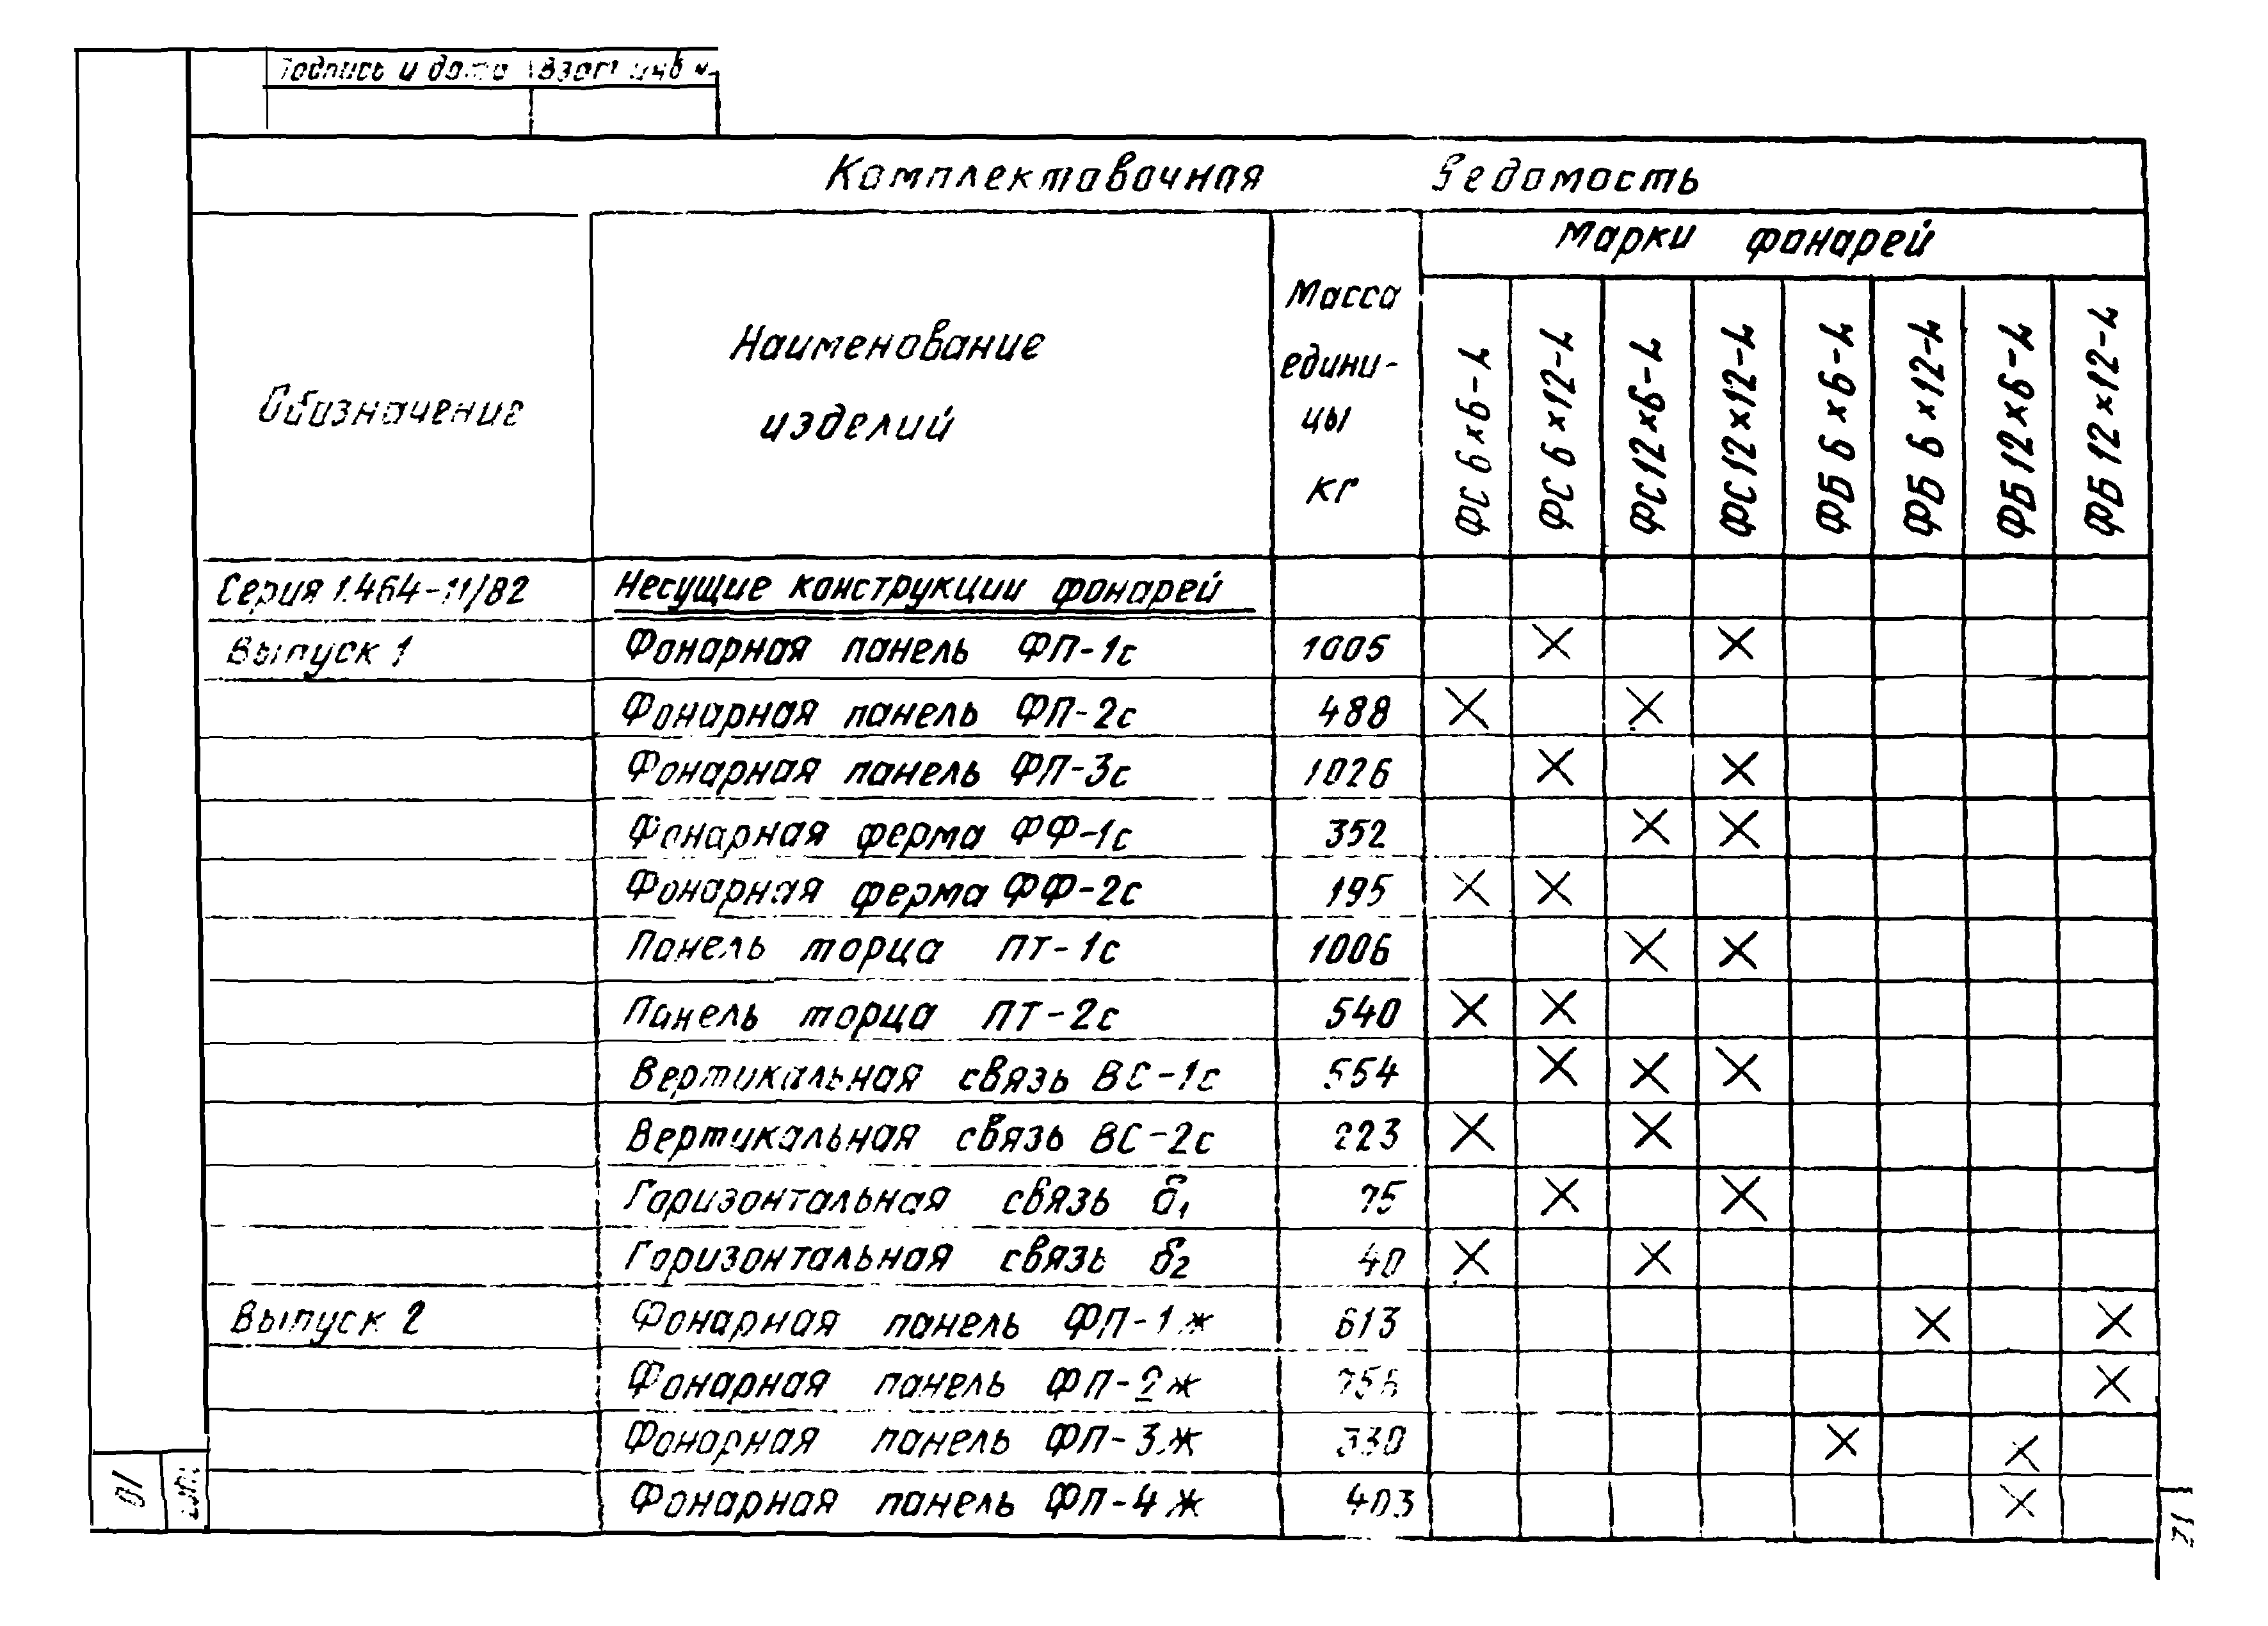 Подпись и дата Взам инв №
Комплектовочная ведомость
Обозначение
Наименование
изделий
Масса
едини-
цы
кг
Марки фонарей
ФС 6×6-L
ФС 6×12-L
ФС12×6-L
ФС12×12-L
ФБ 6×6-L
ФБ 6×12-L
ФБ 12×6-L
ФБ 12×12-L
Серия 1.464-11/82 Несущие конструкции фонарей
Выпуск 1 Фонарная панель ФП-1с 1005 × ×
Фонарная панель ФП-2с 488 × ×
Фонарная панель ФП-3с 1026 × ×
Фонарная ферма ФФ-1с 352 × ×
Фонарная ферма ФФ-2с 195 × ×
Панель торца ПТ-1с 1006 × ×
Панель торца ПТ-2с 540 × ×
Вертикальная связь ВС-1с 554 × × ×
Вертикальная связь ВС-2с 223 × ×
Горизонтальная связь б1 75 × ×
Горизонтальная связь б2 40 × ×
Выпуск 2 Фонарная панель ФП-1ж 613 × ×
Фонарная панель ФП-2ж ×
Фонарная панель ФП-3ж 330 × ×
Фонарная панель ФП-4ж 403 ×